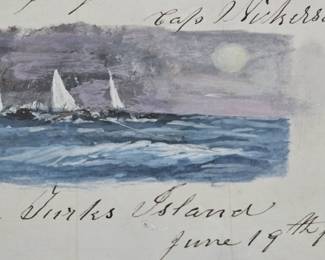 Cap Nickers
Turks Island
June 19th